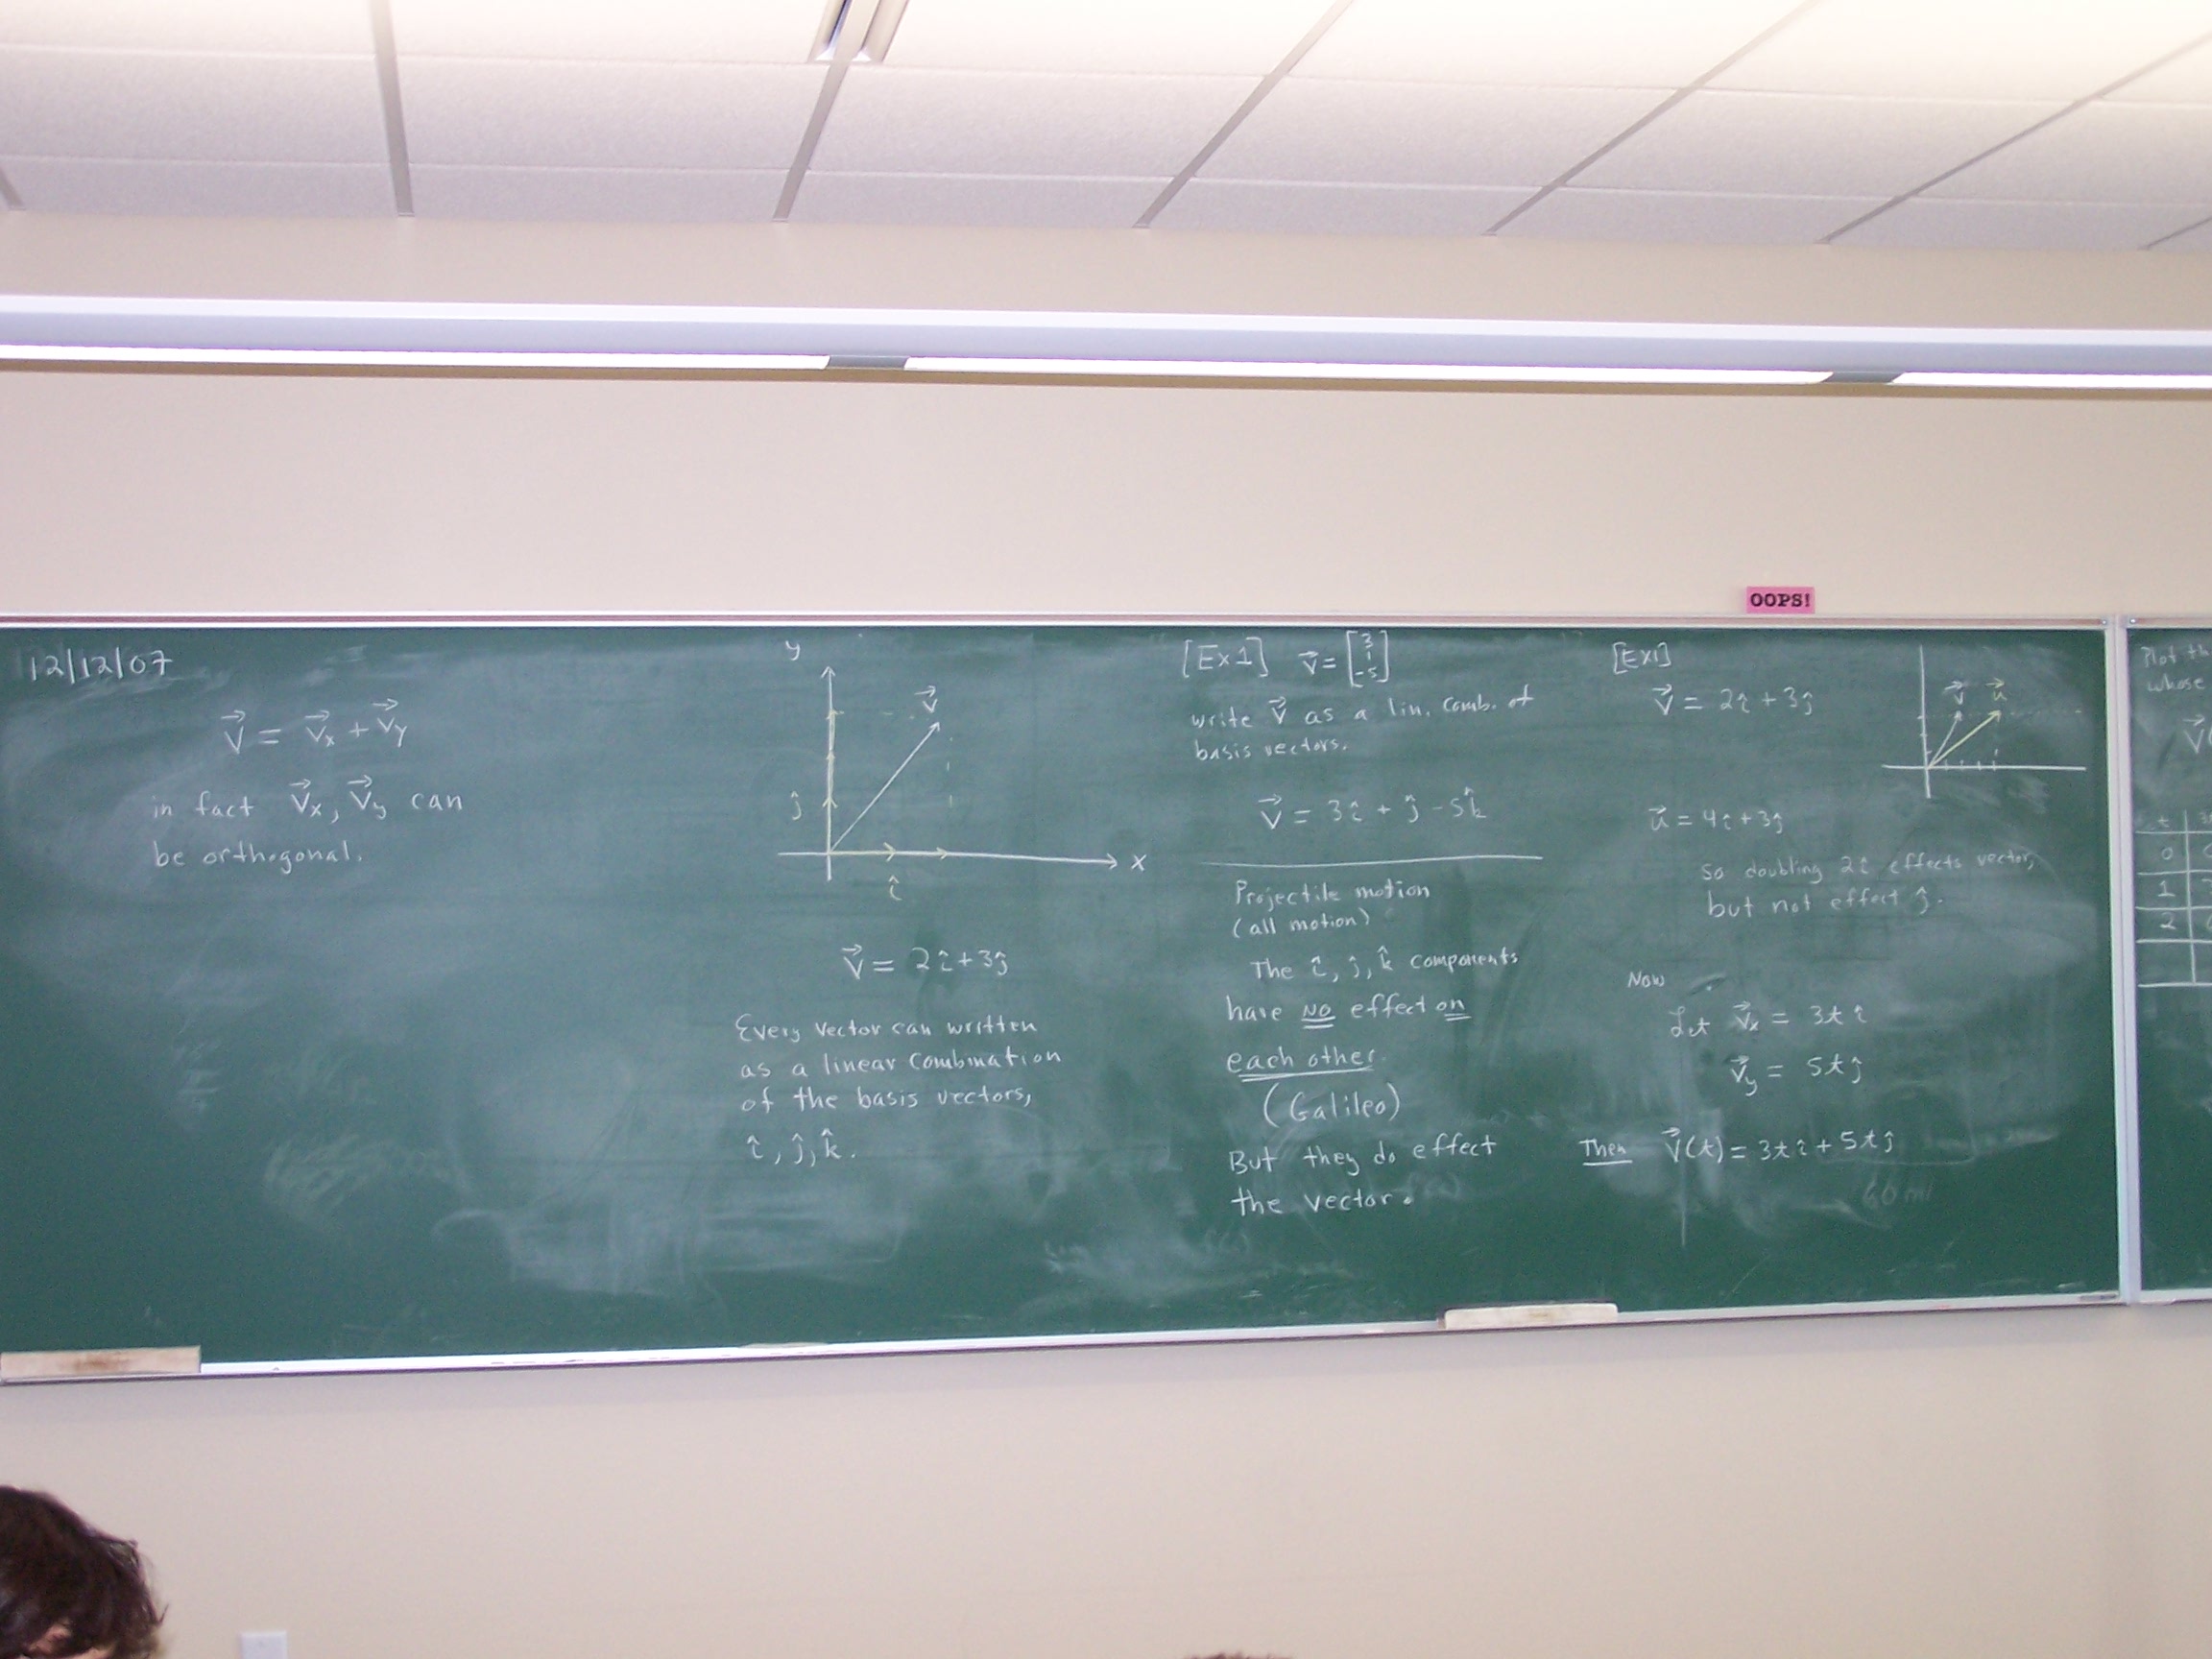 OOPS!
12/12/07
v⃗ = v⃗ₓ + v⃗ᵧ
in fact v⃗ₓ, v⃗ᵧ can
be orthogonal.
y
v⃗
ĵ
x
î
v⃗ = 2î + 3ĵ
Every vector can written
as a linear combination
of the basis vectors,
î, ĵ, k̂.
[Ex 1] v⃗ = [3 1 -5]
write v⃗ as a lin. comb. of
basis vectors.
v⃗ = 3î + ĵ - 5k̂
Projectile motion
(all motion)
The î, ĵ, k̂ components
have no effect on
each other.
(Galileo)
But they do effect
the vector.
[Ex1]
v⃗ = 2î + 3ĵ
v⃗ u⃗
u⃗ = 4î + 3ĵ
so doubling 2î effects vector,
but not effect ĵ.
Now
Let v⃗ₓ = 3t î
v⃗ᵧ = 5t ĵ
Then v⃗(t) = 3t î + 5t ĵ
Plot
whose
v⃗(
t
0
1
2